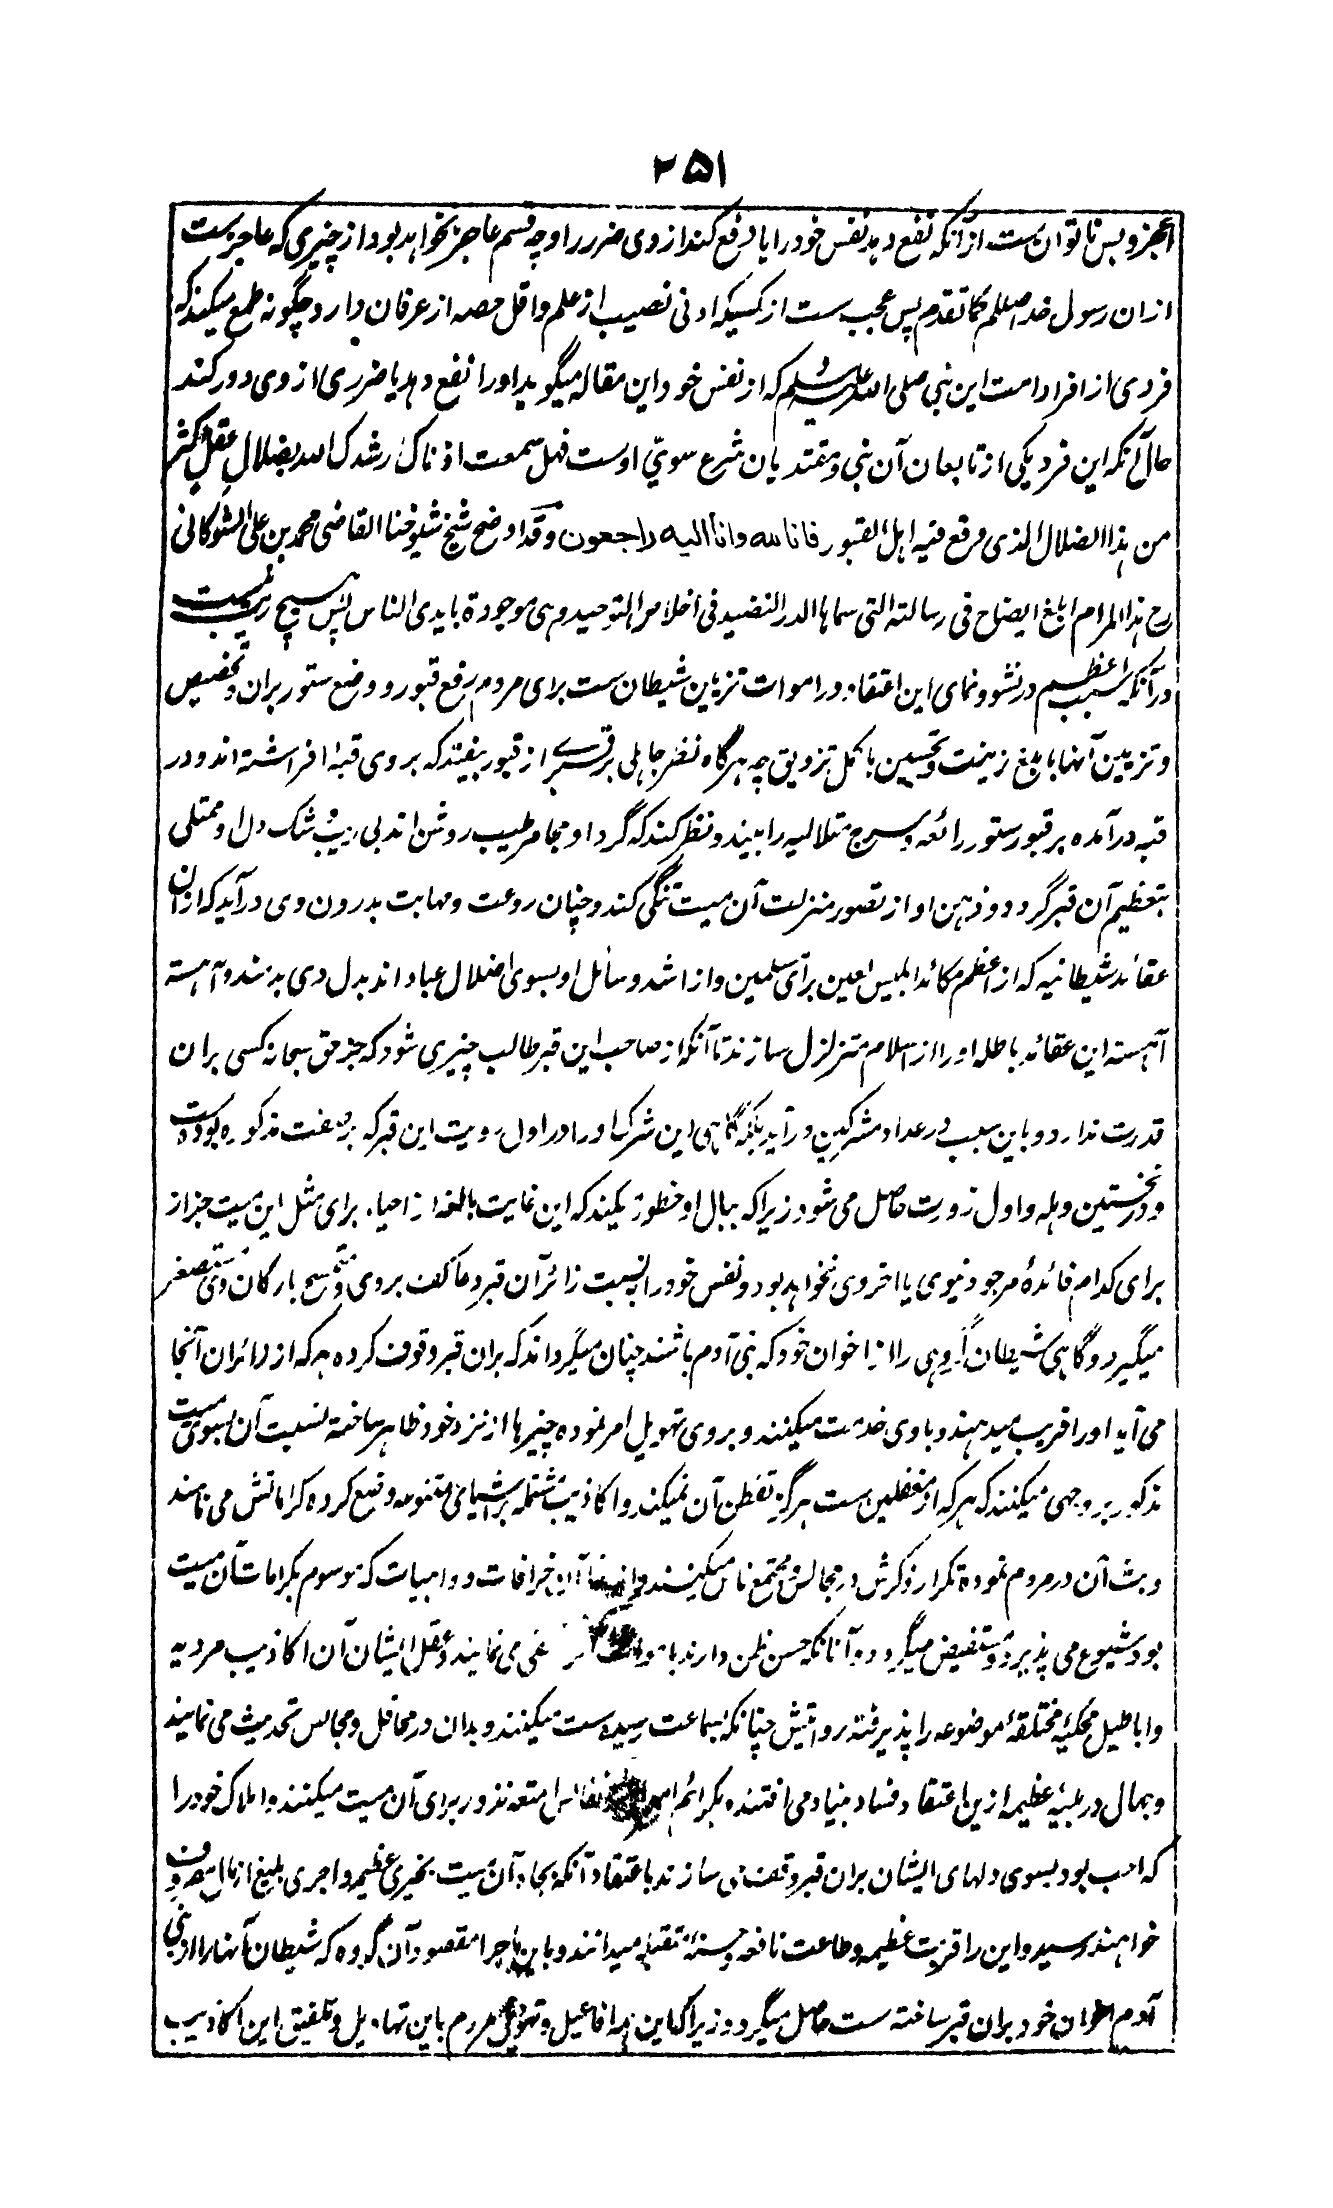 ۲۵۱
اعجز و بس ناتوان ست از آنکه نفع دهد نفس خود را یا دفع کند از وی ضرر را و چه قسم عاجز نخواهد بود از چیزی که عاجز ست
ازان رسول خدا صلعم کما تقدم پس عجب ست از کسیکه ادنی نصیب از علم و اقل حصه از عرفان دارد چگونه طمع میکند که
فردی از افراد امت این نبی صلی الله علیه وسلم که از نفس خود این مقاله میگوید او را نفع دهد یا ضرری از وی دور کند
حال آنکه این فرد یکی از تابعان آن نبی و مقتدیان شرع سوی اوست فهل سمعت اذناک ارشدک الله بضلال عقل اکثر
من هذا الضلال الذی وقع فیه اهل القبور فانا لله وانا الیه راجعون وقد اوضح شیخ شیوخنا القاضی محمد بن علی الشوکانی
رح هذا المرام ابلغ ایضاح فی رسالته التی سماها الدر النضید فی اخلاص التوحید وهی موجودة بایدی الناس پس هیچ ریب نیست
در آنکه سبب اعظم در نشو و نمای این اعتقاد در اموات تزیین شیطان ست برای مردم رفع قبور و وضع ستور بران و تجصیص
و تزیین آنها بابلغ زینت و تحسین باکمل تزویق چه هرگاه نظر جاهلی بر قبری از قبور بیفتد که بروی قبه افراشته اند و در
قبه درآمده بر قبور ستور رائعه و سرج متلالیه را بیند و نظر کند که گرد او مجامر طیب روشن اند بی ریب و شک دل او ممتلی
بتعظیم آن قبر گردد و ذهن او از تصور منزلت آن میت تنگی کند و چنان روعت و مهابت بدرون وی درآید که ازان
عقائد شیطانیه که از اعظم مکائد ابلیس لعین برای مسلمین و از اشد وسائل او بسوی اضلال عباد اند بدل وی بزنند و آهسته
آهسته این عقائد باطله او را از اسلام متزلزل سازند تا آنکه از صاحب این قبر طالب چیزی شود که جز حق سبحانه کسی بران
قدرت ندارد و باین سبب در عداد مشرکین درآید بلکه گاهی این شرک او را در اول رویت این قبر که بر صفت مذکوره بوده ست
و در نخستین وهله و اول زورت حاصل می شود زیراکه ببال او خطور میکند که این غایت بالغه از احیاء برای مثل این میت جز از
برای کدام فائدهٔ مرجو دنیوی یا اخروی نخواهد بود و نفس خود را به نسبت زائر آن قبر و عاکف بروی و متمسح بارکان وی مستصغر
میگیرد و گاهی شیطان گروهی را از اخوان خود که بنی آدم باشند چنان میگرداند که بران قبر وقوف کرده هر که از زائران آنجا
می آید او را فریب میدهند و باوی خدمت میکنند و بروی تهویل امر نموده چیزها از نزد خود ظاهر ساخته نسبت آن بسوی میت
مذکور بر وجهی میکنند که هر که از مغفلین ست هرگز تفطن آن نمیکند و اکاذیب مشتمله بر اشیای متنوعه وضع کرده کراماتش می نامند
و بث آن در مردم نموده تکرار ذکرش در مجالس مجتمع ناس میکنند آن خرافات و واهیات که موسوم بکرامات آن میت
بود شیوع می پذیرد و مستفیض میگردد و آنانکه حسن ظن دارند می نمایند و عقل ایشان آن اکاذیب مرویه
و اباطیل محکیهٔ مختلقهٔ موضوعه را پذیرفته روایتش چنانکه بسماعت رسیده ست میکنند و بدان در محافل و مجالس تحدیث می نمایند
و جهال در بلیهٔ عظیمه ازین اعتقاد فساد بنیاد می افتند و بکرائم نفائس امتعه نذور برای آن میت میکنند و املاک خود را
که احب بود بسوی دلهای ایشان بران قبر وقف می سازند باعتقاد آنکه بجاه آن میت بخیری عظیم و اجری بلیغ از مال مصروف
خواهند رسید و این را قربت عظیمه و طاعت نافعه و حسنهٔ متقبله میدانند و باین ماجرا مقصود آن گروه که شیطان آنها را از بنی
آدم اخوان خود بران قبر ساخته ست حاصل میگردد زیراکه این همه افاعیل و تهویل مردم باین تهاویل و تلفیق این اکاذیب